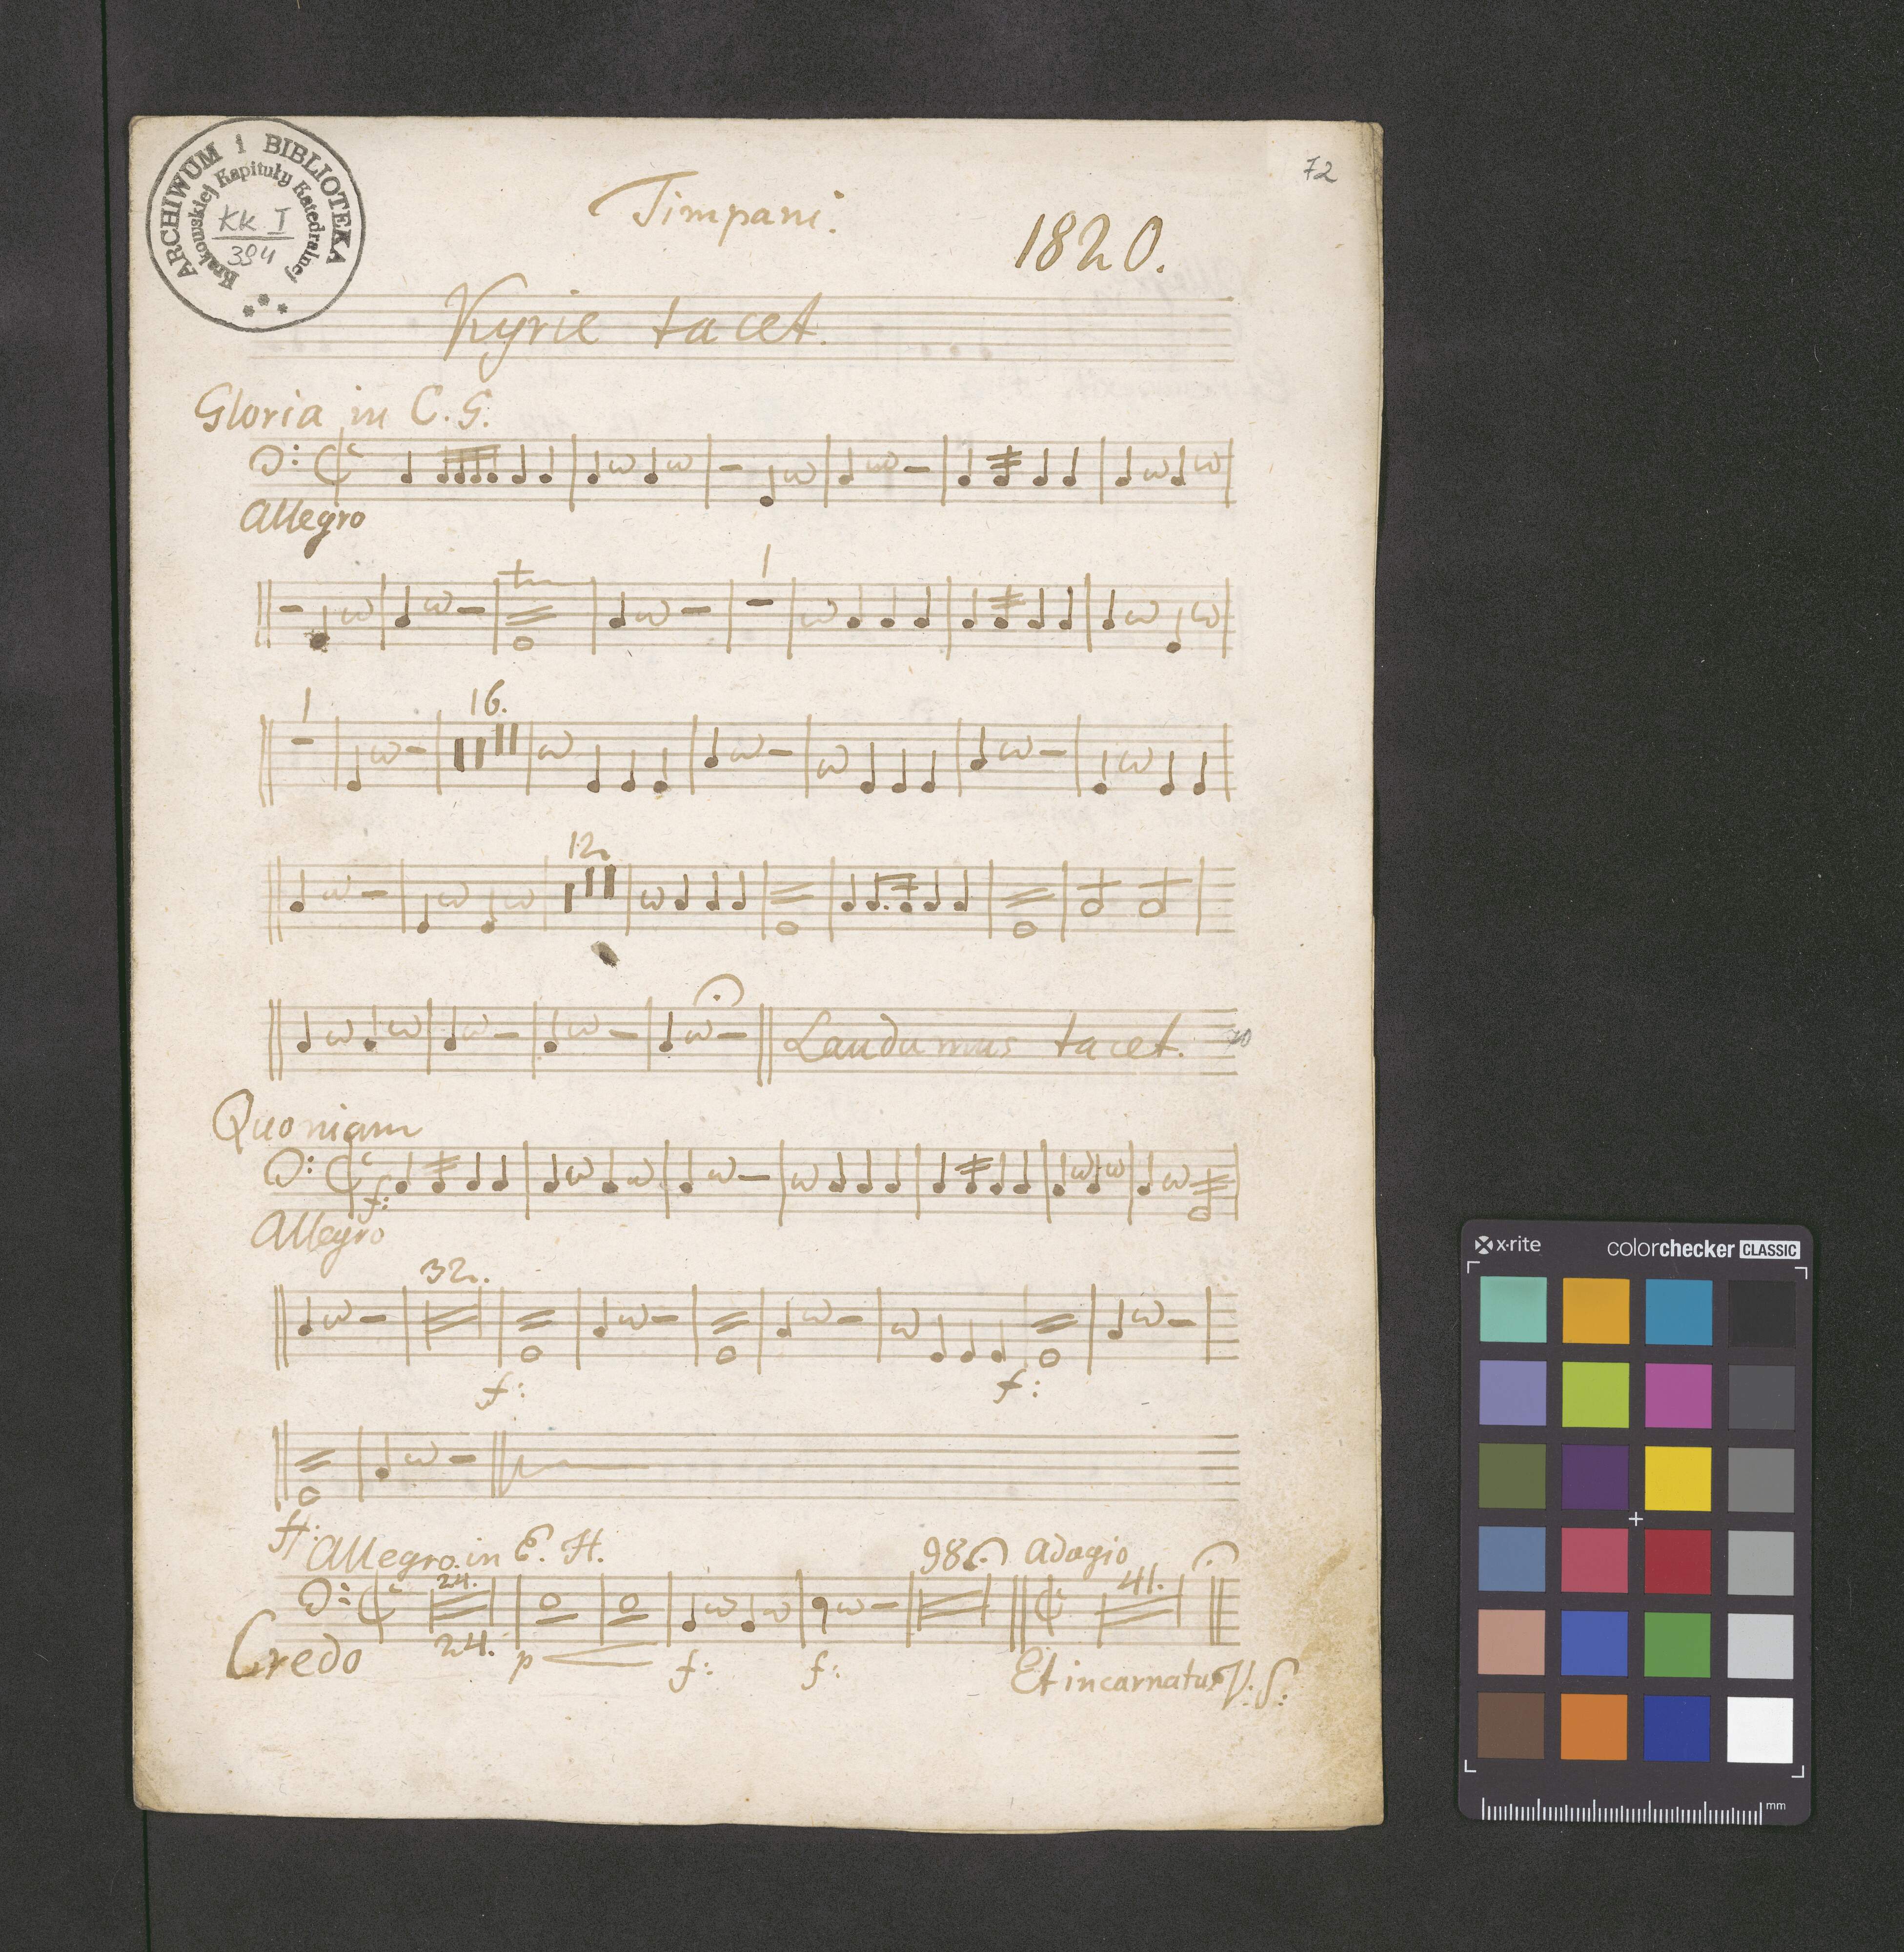 72
ARCHIWUM i BIBLIOTEKA
Krakowskiej Kapituły Katedralnej
KK I
394
Timpani.
1820.
Kyrie tacet.
Gloria in C. G.
Allegro
1
1
16.
12
Laudamus tacet.
Quoniam
f:
Allegro
32.
f:
f:
ff:
Allegro in E. H.
98
Adagio
24.
41.
Credo
24.
p
f:
f:
Et incarnatus V. S:
x·rite
colorchecker CLASSIC
mm